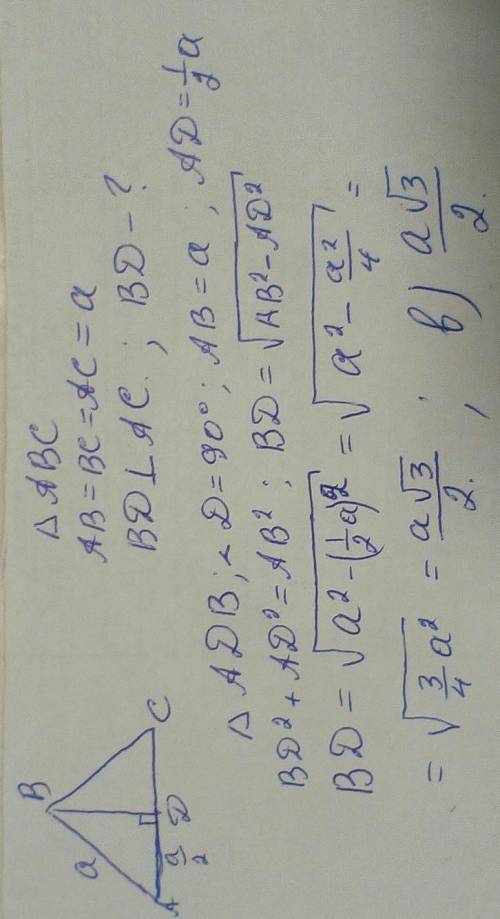 △ ABC
AB = BC = AC = a
BD ⊥ AC ; BD - ?
B
a
A
a/2
D
C
△ ADB ; ∠ D = 90° ; AB = a ; AD = 1/2 a
BD² + AD² = AB² ; BD = √(AB² - AD²)
BD = √(a² - (1/2 a)²) = √(a² - a²/4) =
= √(3/4 a²) = a√3/2 ; в) a√3/2.